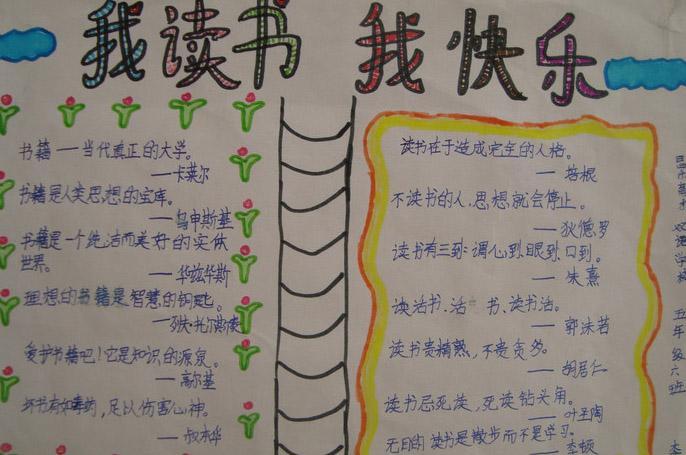 我读书 我快乐
书籍——当代真正的大学。
——卡莱尔
书籍是人类思想的宝库。
——乌申斯基
书籍是一个纯洁而美好的实体
世界。
——华兹华斯
理想的书籍是智慧的钥匙。
——列夫·托尔斯泰
爱护书籍吧！它是知识的源泉。
——高尔基
坏书有如毒药，足以伤害心神。
——叔本华
读书在于造成完全的人格。
——培根
不读书的人，思想就会停止。
——狄德罗
读书有三到：谓心到，眼到，口到。
——朱熹
读活书，活 书、读书活。
——郭沫若
读书贵精熟，不贵贪多。
——胡居仁
读书忌死读，死读钻头角。
——叶圣陶
无目的读书是散步而不是学习。
——李顿
五年级六班